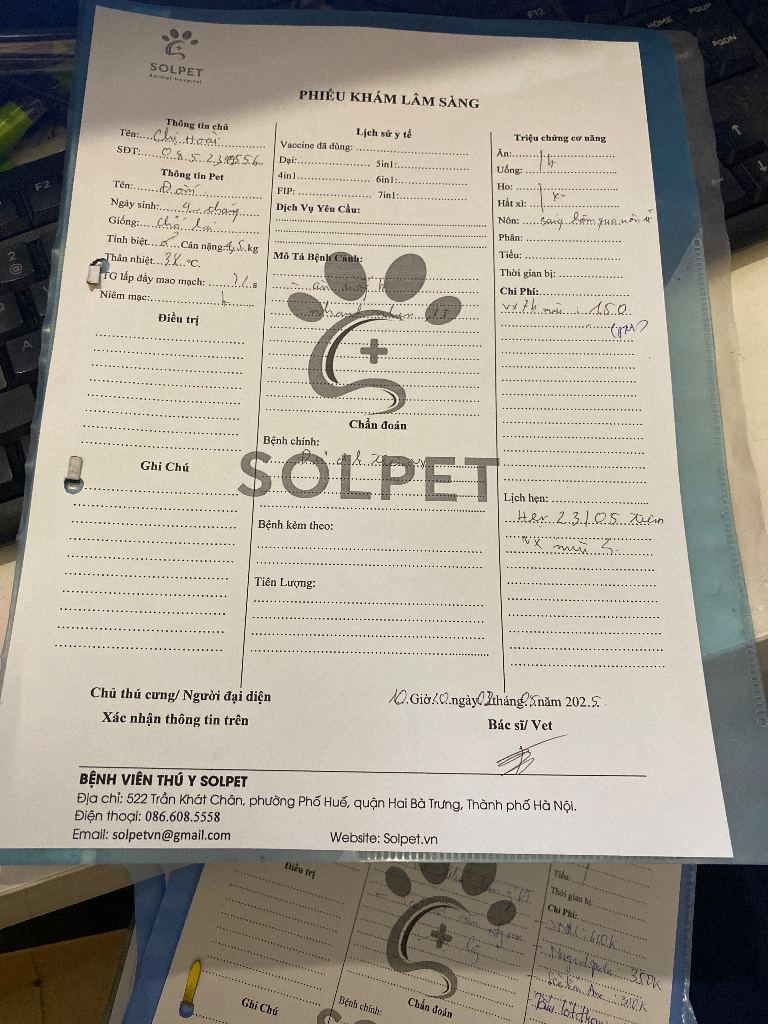 SOLPET
Animal Hospital
PHIẾU KHÁM LÂM SÀNG
Thông tin chủ
Tên: Chị Hoài
SĐT: 08.5.23
Thông tin Pet
Tên:
Ngày sinh: 4 tháng
Giống:
Tính biệt Cân nặng: 4,5 kg
Thân nhiệt 38 °C.
TG lấp đầy mao mạch: s
Niêm mạc:
Điều trị
Ghi Chú
Lịch sử y tế
Vaccine đã dùng:
Dại: 5in1:
4in1 6in1:
FIP: 7in1:
Dịch Vụ Yêu Cầu:
Mô Tả Bệnh Cảnh:
Chẩn đoán
Bệnh chính:
SOLPET
Bệnh kèm theo:
Tiên Lượng:
Triệu chứng cơ năng
Ăn:
Uống:
Ho:
Hắt xì:
Nôn: sáng hôm qua nôn
Phân:
Tiểu:
Thời gian bị:
Chi Phí:
150
Lịch hẹn:
Hẹn 23/05 tiêm
vx mũi 3.
Chủ thú cưng/ Người đại diện
Xác nhận thông tin trên
10 Giờ ngày tháng 05 năm 2025.
Bác sĩ/ Vet
BỆNH VIÊN THÚ Y SOLPET
Địa chỉ: 522 Trần Khát Chân, phường Phố Huế, quận Hai Bà Trưng, Thành phố Hà Nội.
Điện thoại: 086.608.5558
Email: solpetvn@gmail.com Website: Solpet.vn
Điều trị
Ghi Chú
Bệnh chính:
Chẩn đoán
Tiểu:
Thời gian bị:
Chi Phí:
350k
300k
F2
F12
HOME
PGUP
PGDN
2
@
A